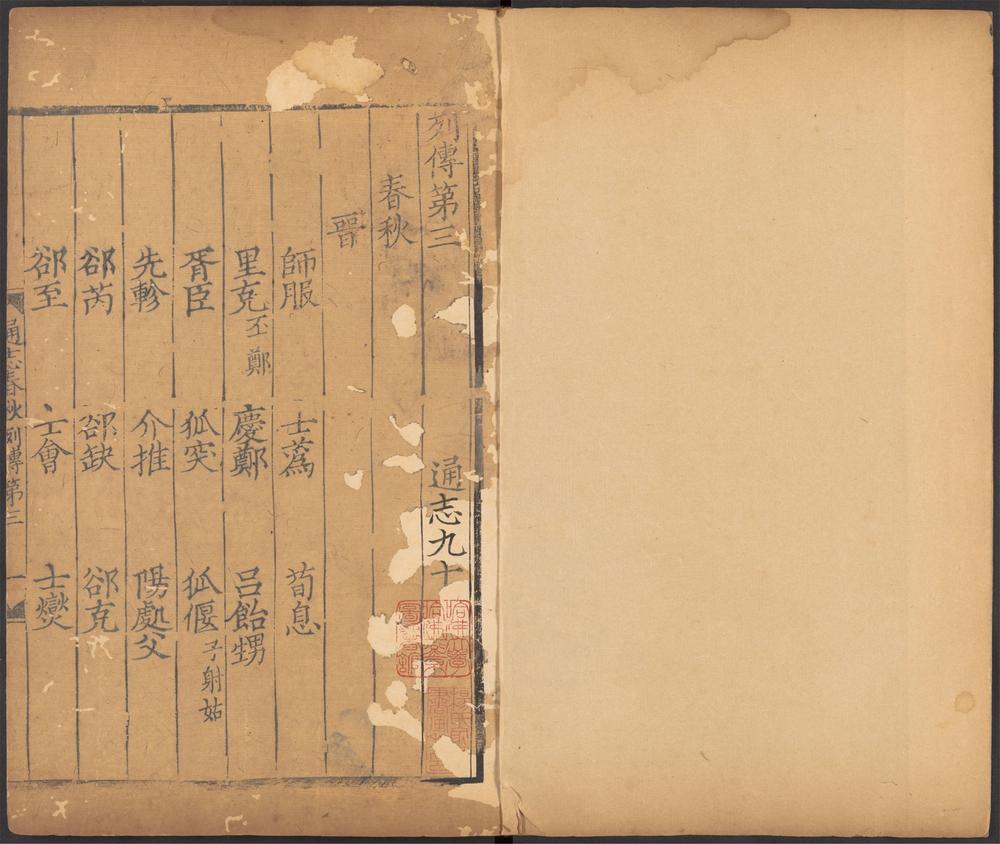 列傳第三 通志九十
春秋
晉
師服 士蒍 荀息
里克 丕鄭 慶鄭 呂飴甥
胥臣 狐突 狐偃 子射姑
先軫 介推 陽處父
郤芮 郤缺 郤克
郤至 士會 士燮
通志春秋列傳第三 一